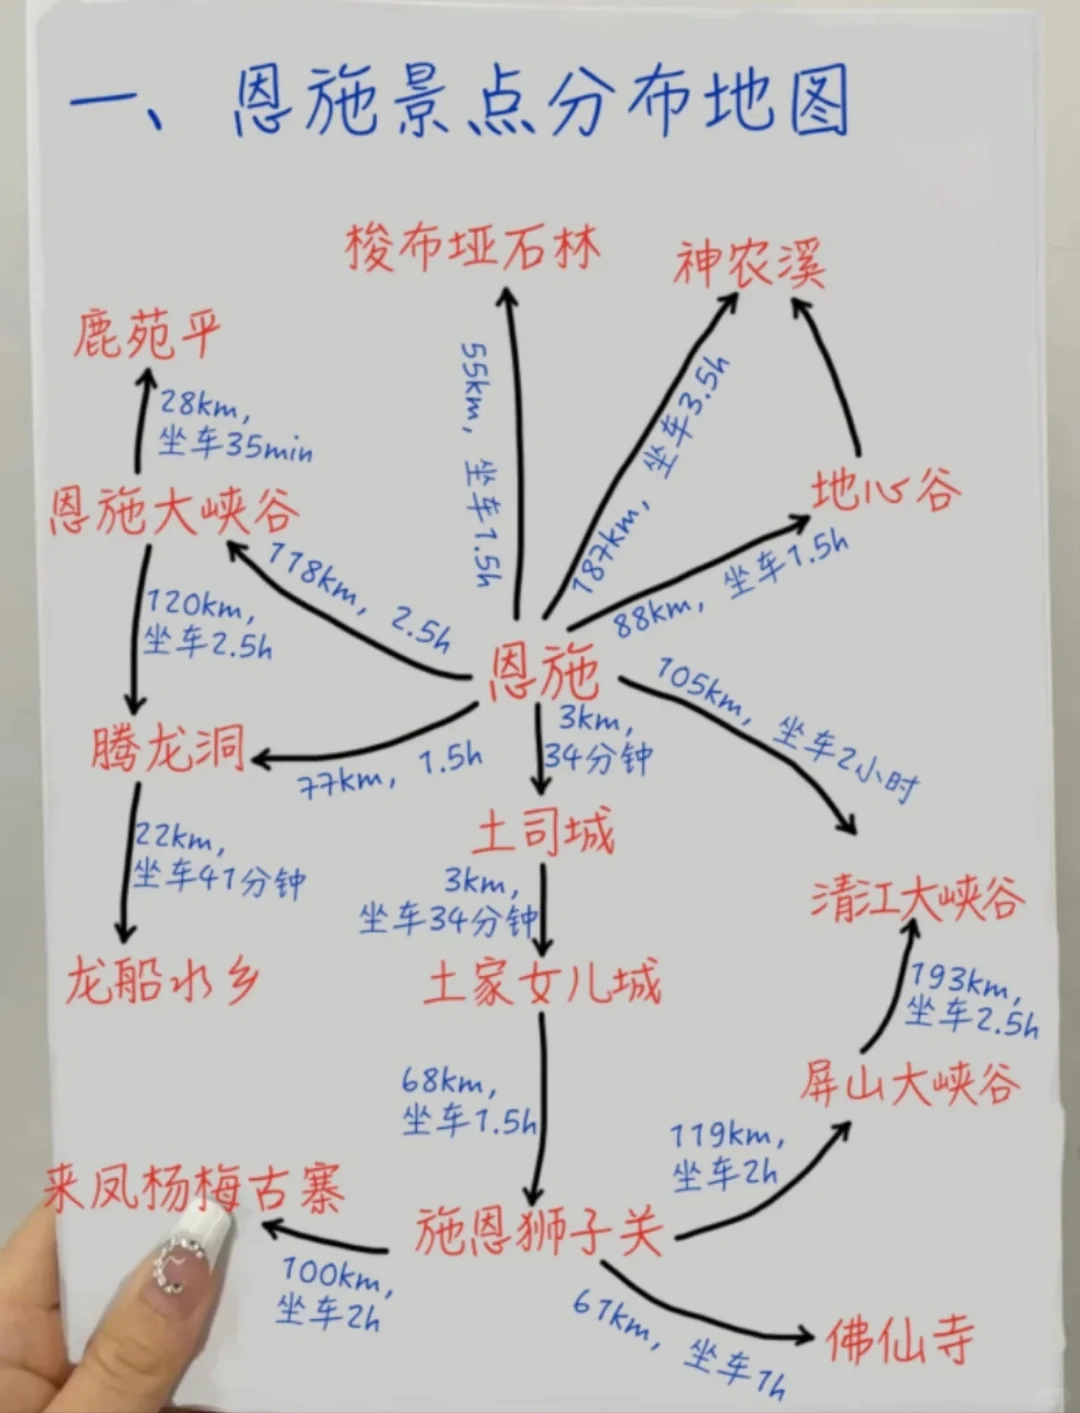 一、恩施景点分布地图
梭布垭石林
神农溪
鹿苑平
28km,
坐车35min
55km, 坐车1.5h
187km, 坐车3.5h
恩施大峡谷
地心谷
118km, 2.5h
88km, 坐车1.5h
120km,
坐车2.5h
恩施
105km, 坐车2小时
3km,
34分钟
腾龙洞
77km, 1.5h
土司城
22km,
坐车41分钟
3km,
坐车34分钟
清江大峡谷
龙船水乡
土家女儿城
193km,
坐车2.5h
68km,
坐车1.5h
屏山大峡谷
119km,
坐车2h
来凤杨梅古寨
施恩狮子关
100km,
坐车2h
67km, 坐车1h
佛仙寺